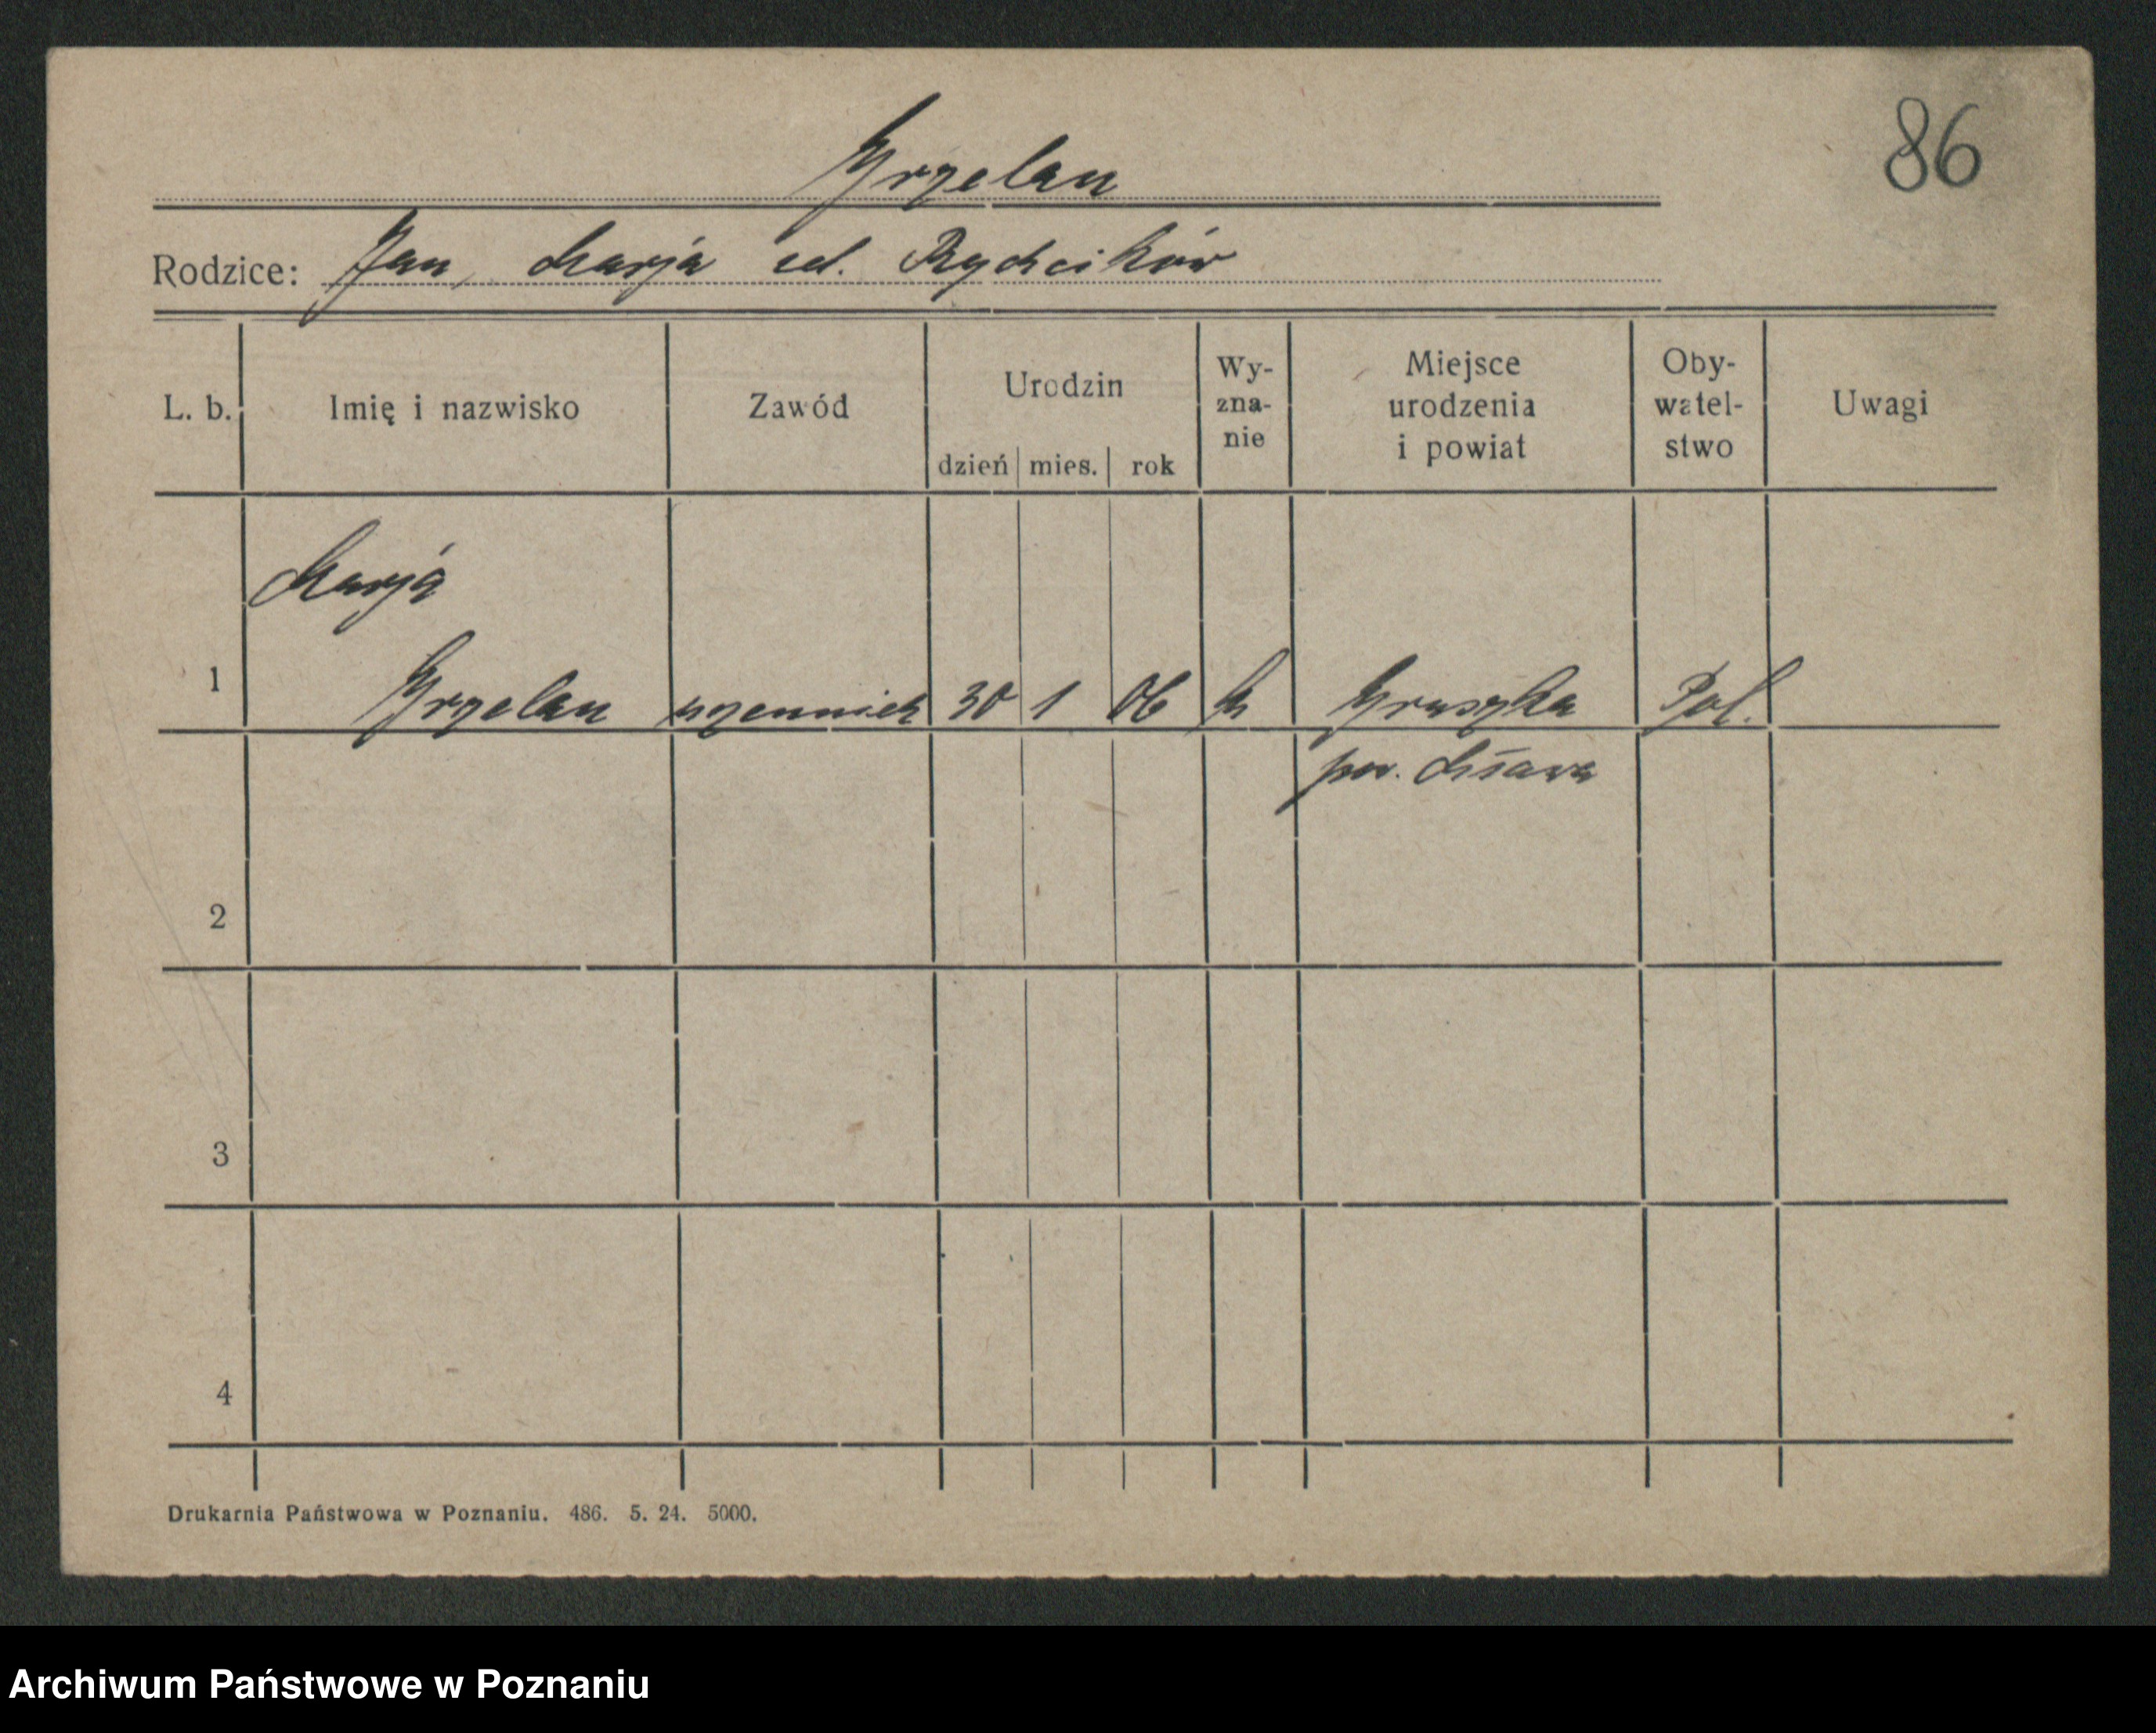 Grzelan
86
Rodzice: Jan, Marja ul. Rychcików
L. b. Imię i nazwisko Zawód Urodzin dzień mies. rok Wy-zna-nie Miejsce urodzenia i powiat Oby-watel-stwo Uwagi
Marja
1 Grzelan 30 1 06 k Gruszka Pol.
pow.
2
3
4
Drukarnia Państwowa w Poznaniu. 486. 5. 24. 5000.
Archiwum Państwowe w Poznaniu